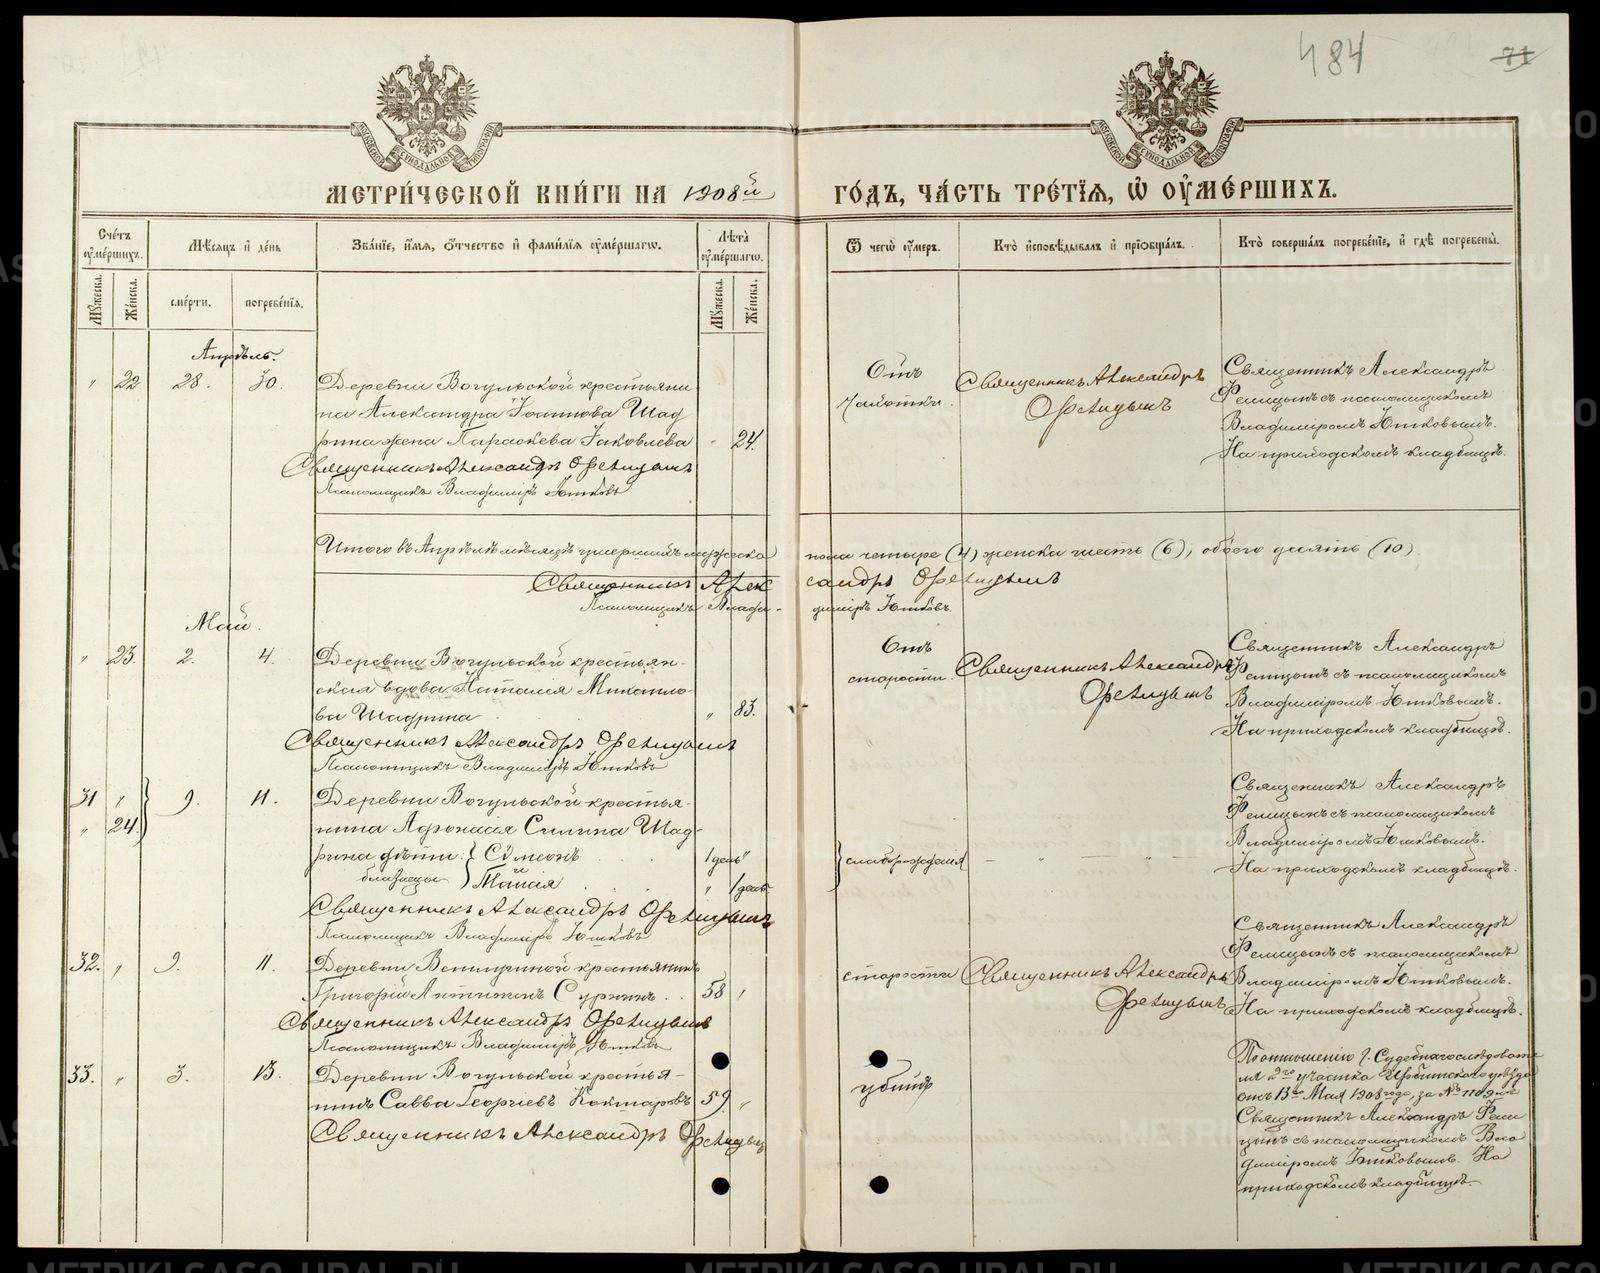 484
71
МОСКОВСКОЙ СѴНОДАЛЬНОЙ ТИПОГРАФІИ
МОСКОВСКОЙ СѴНОДАЛЬНОЙ ТИПОГРАФІИ
МЕТРИ́ЧЕСКОЙ КНИ́ГИ НА 1908й ГО́ДЪ, ЧА́СТЬ ТРЕ́ТІѦ, Ѡ҆ ОУ҆МЕ́РШИХЪ.
Сче́тъ оу҆ме́ршихъ.
Мѣ́сяцъ и҆ де́нь
Зва́нїе, и҆́мя, ѻ҆́тчество и҆ фами́лїя оу҆ме́ршагѡ.
Лѣ́та оу҆ме́ршагѡ.
Ѿ чегѡ̀ оу҆́меръ.
Кто̀ и҆сповѣ́дывалъ и҆ прїѡбща́лъ.
Кто̀ соверша́лъ погребе́нїе, и҆ гдѣ̀ погребены̀.
Мꙋ́жеска.
Же́нска.
сме́рти.
погребе́нїя.
Мꙋ́жеска.
Же́нска.
Апрѣль.
" 22. 28. 30.
Деревни Вогульской крестьяни
на Александра Іоаннова Шад
рина жена Параскева Іаковлева " 24.
Священникъ Александръ Фелицынъ
Псаломщикъ Владиміръ Ютковъ
Отъ
чахотки.
Священникъ Александръ
Фелицынъ
Священникъ Александръ
Фелицынъ съ псаломщикомъ
Владиміромъ Ютковымъ.
На приходскомъ кладбищѣ.
Итого въ Апрѣлѣ мѣсяцѣ умершихъ мужеска пола четыре (4) женска шесть (6), обоего десять (10)
Священникъ Александръ Фелицынъ
Псаломщикъ Владиміръ Ютковъ
Май.
" 23. 2. 4.
Деревни Вогульской крестьян-
ская вдова Наталія Михаило-
ва Шадрина " 83.
Священникъ Александръ Фелицынъ
Псаломщикъ Владиміръ Ютковъ
Отъ
старости.
Священникъ Александръ
Фелицынъ
Священникъ Александръ
Фелицынъ съ псаломщикомъ
Владиміромъ Ютковымъ.
На приходскомъ кладбищѣ.
31 " 9. 11.
" 24.
Деревни Вогульской крестья-
нина Афонасія Силина Шад-
рина дѣти: Сѵмеонъ 1 день "
близнецы Маѳія " 1 день
Священникъ Александръ Фелицынъ
Псаломщикъ Владиміръ Ютковъ
слаборожденія
Священникъ Александръ
Фелицынъ съ псаломщикомъ
Владиміромъ Ютковымъ.
На приходскомъ кладбищѣ.
32. " 9. 11.
Деревни крестьянинъ
Григорій Антипинъ Суринъ 58 "
Священникъ Александръ Фелицынъ
Псаломщикъ Владиміръ Ютковъ
старости
Священникъ Александръ
Фелицынъ
Священникъ Александръ
Фелицынъ съ псаломщикомъ
Владиміромъ Ютковымъ.
На приходскомъ кладбищѣ.
33. " 3. 13.
Деревни Вогульской крестья-
нинъ Савва Георгіевъ Кокшаровъ 59. "
Священникъ Александръ Фелицынъ
убитъ
По отношенію г. Судебнаго слѣдовате
ля 2го участка Ирбитскаго уѣзда
отъ 13го Мая 1908 года, за №
Священникъ Александръ Фели
цынъ съ псаломщикомъ Вла
диміромъ Ютковымъ. На
приходскомъ кладбищѣ.
METRIKI.GASO-URAL.RU